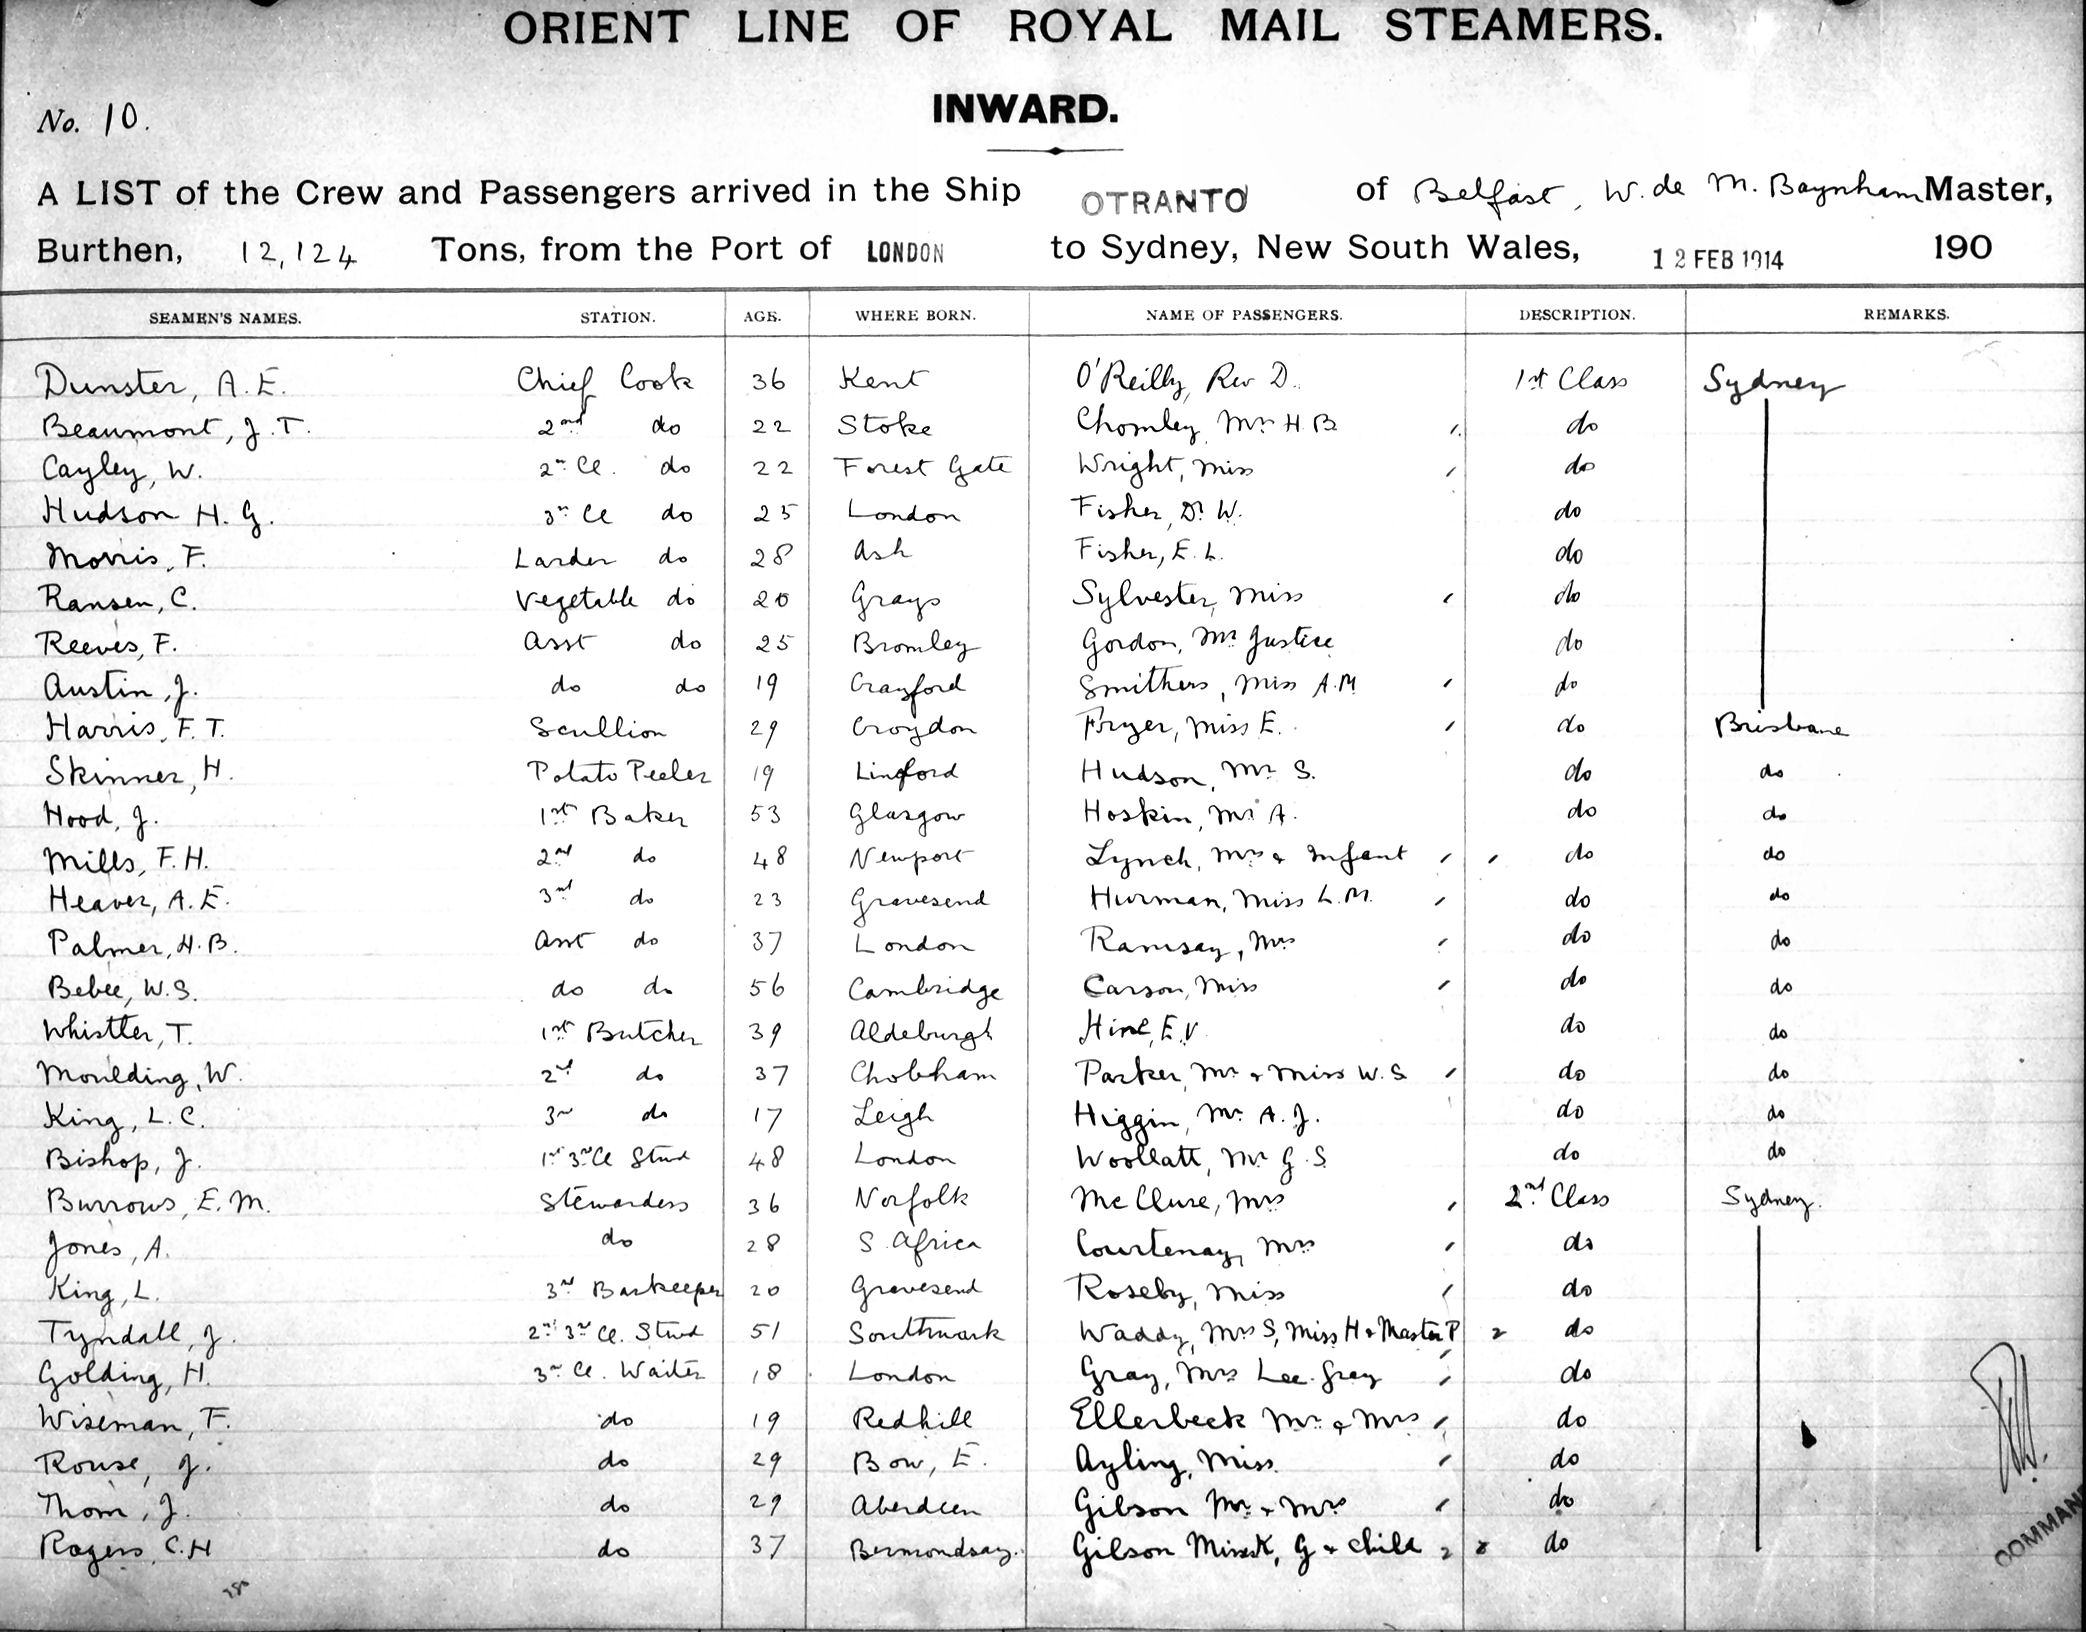 ORIENT LINE OF ROYAL MAIL STEAMERS.
INWARD.
No. 10.
A LIST of the Crew and Passengers arrived in the Ship OTRANTO of Belfast, W. de M. Baynham Master,
Burthen, 12,124 Tons, from the Port of LONDON to Sydney, New South Wales, 12 FEB 1914 190
SEAMEN'S NAMES. STATION. AGE. WHERE BORN. NAME OF PASSENGERS. DESCRIPTION. REMARKS.
Dunster, A. E. Chief Cook 36 Kent O'Reilly, Rev D. 1st Class Sydney
Beaumont, J. T. 2nd do 22 Stoke Chomley, H. B. do
Cayley, W. 2nd Cl. do 22 Forest Gate Wright, Miss do
Hudson H. G. 3rd Cl do 25 London Fisher, Dr W. do
Morris, F. Larder do 28 Ash Fisher, E. L. do
Ransen, C. Vegetable do 20 Grays Sylvester, Miss do
Reeves, F. Asst do 25 Bromley Gordon, Mr Justice do
Austin, J. do do 19 Crayford Smithers, Miss A.M do
Harris, F. T. Scullion 29 Croydon Fryer, Miss E. do Brisbane
Skinner, H. Potato Peeler 19 Lingford Hudson, Mr S. do do
Hood, J. 1st Baker 53 Glasgow Hoskin, Mr A. do do
Mills, F. H. 2nd do 48 Newport Lynch, Mrs & Infant do do
Heaver, A. E. 3rd do 23 Gravesend Hurman, Miss L. M. do do
Palmer, H. B. Asst do 37 London Ramsay, Mrs do do
Bebee, W. S. do do 56 Cambridge Carson, Miss do do
Whistler, T. 1st Butcher 39 Aldeburgh Hine, E. V. do do
Moulding, W. 2nd do 37 Chobham Parker, Mr & Miss W. S do do
King, L. C. 3rd do 17 Leigh Higgin, Mr A. J. do do
Bishop, J. 1st 3rd Cl Stwd 48 London Woollatt, Mr G. S do do
Burrows, E. M. Stewardess 36 Norfolk McClure, Mrs 2nd Class Sydney.
Jones, A. do 28 S Africa Courtenay, Mrs do
King, L. 3rd Barkeeper 20 Gravesend Roseby, Miss do
Tyndall, J. 2nd 3rd Cl. Stwd 51 Southwark Waddy, Mrs S, Miss H & Master P 2 do
Golding, H. 3rd Cl. Waiter 18 London Gray, Mrs Lee-Gray do
Wiseman, F. do 19 Redhill Ellerbeck Mr & Mrs do
Rouse, J. do 29 Bow, E. Ayling, Miss do
Thom, J. do 29 Aberdeen Gibson Mr & Mrs do
Rogers, C. H do 37 Bermondsay. Gibson K, G & Child 2 do
COMMAN